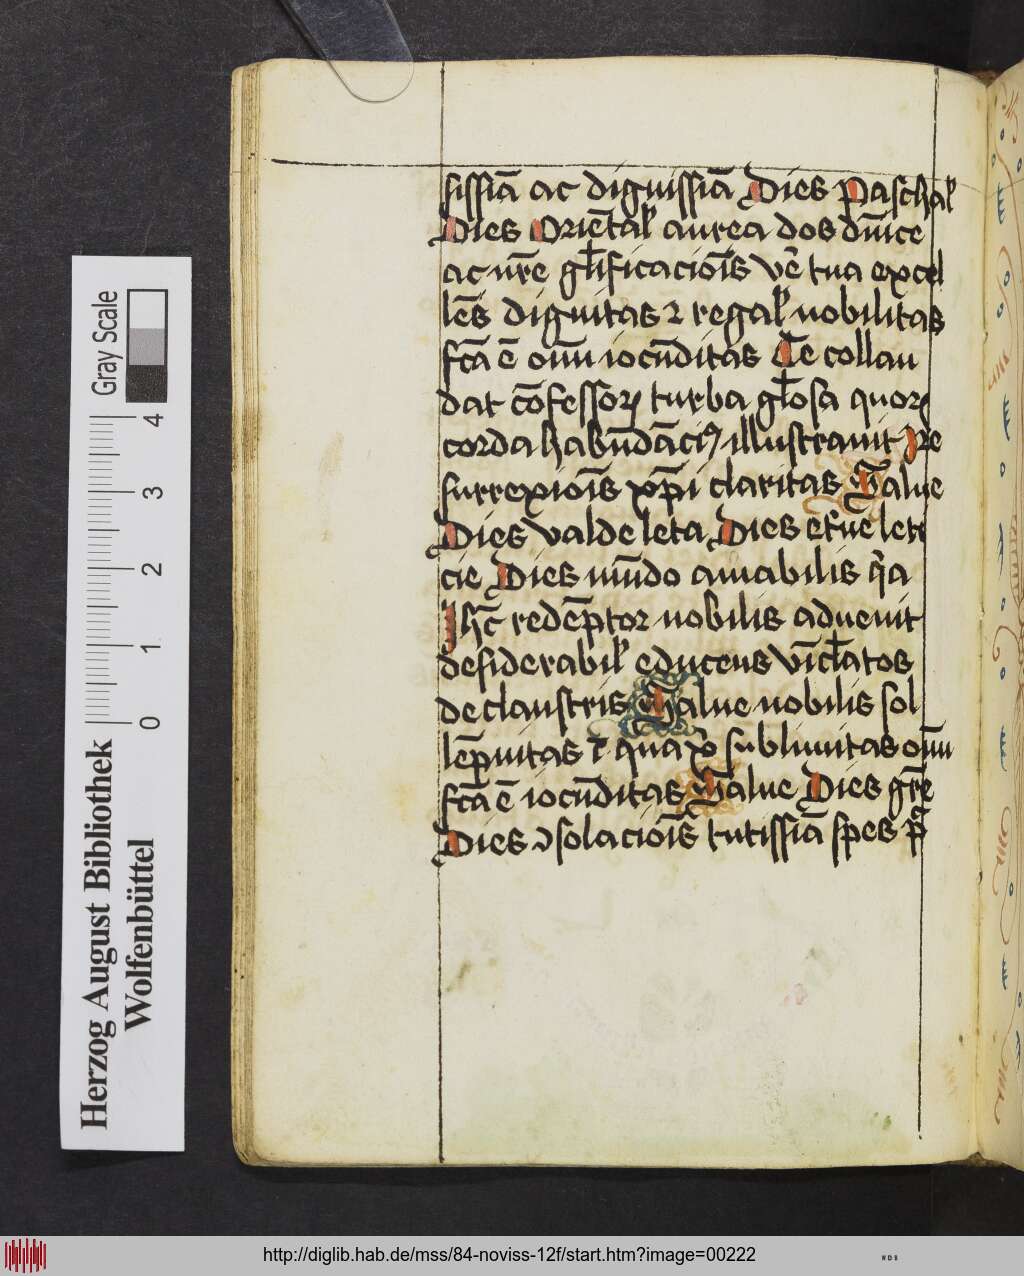 sissīa ac digníssīa Dies Paschal̕
Dies Oriētal̕ aurea dos dn̄ice
ac nr̄e gl̄ificaciōis vē tua excel
lēs dignitas ⁊ regal̕ nobilitas
fc̄a ē om̄i iocūditas Te collau
dat cōfessorꝝ turba gl̄osa quorꝝ
corda habūdācius illustrauit Re
surrexiōis xp̄i claritas Salue
Dies valde leta Dies et̄ne leti
cie Dies mūdo amabilis qͥa
Jhc̄ redēptor nobilis aduenit
desiderabil̕ educens vīcl̄atos
de claustris Salue nobilis sol
lēpnitas ī qua xᵒ sublimitas om̄i
fc̄a ē iocūditas Salue Dies gr̄e
Dies ↄsolaciōis tutissīa spes p̄
Gray Scale
0 1 2 3 4
Herzog August Bibliothek
Wolfenbüttel
http://diglib.hab.de/mss/84-noviss-12f/start.htm?image=00222